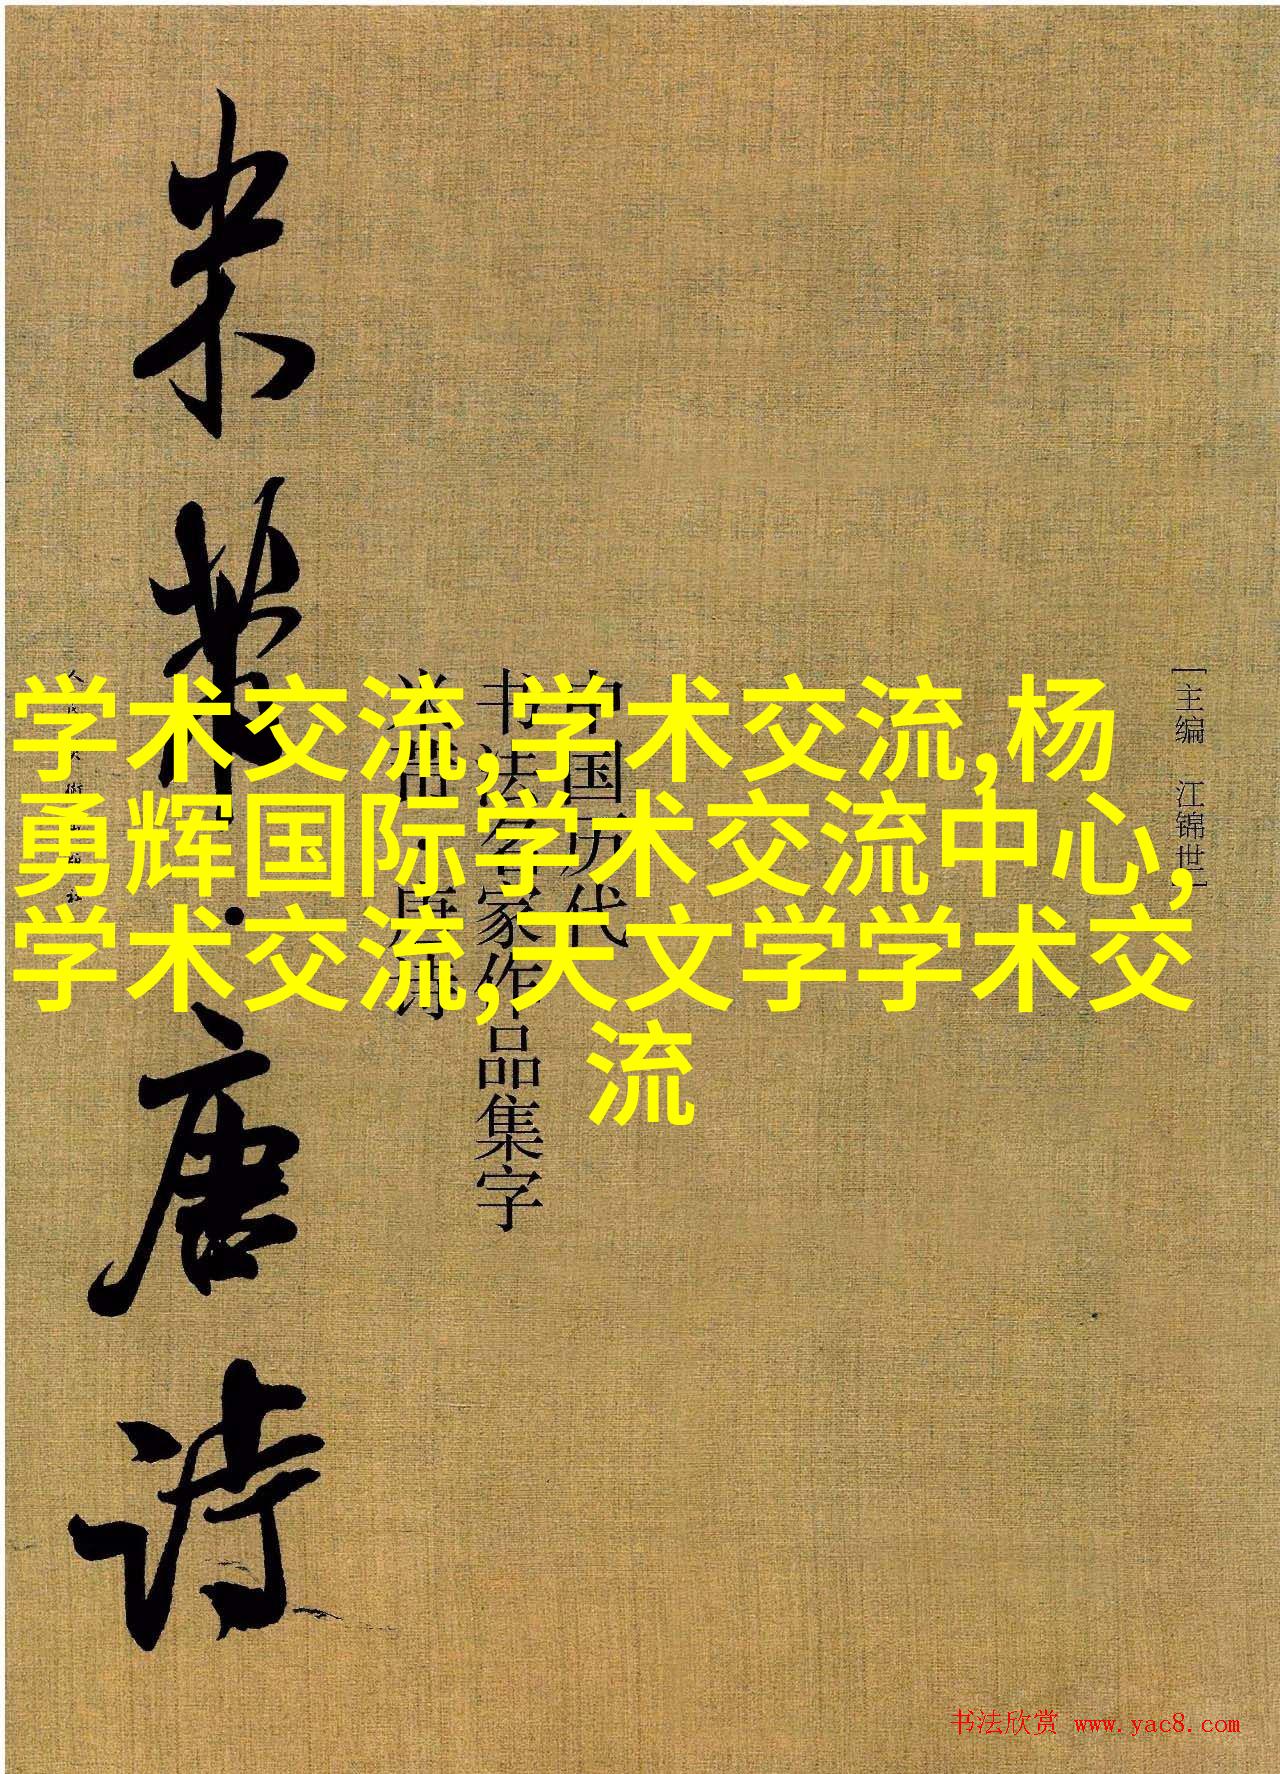 米芾·唐诗
学术交流,学术交流,杨
勇辉国际学术交流中心,
学术交流,天文学学术交
流
中国历代
书法名家作品集字
米芾·唐诗
[主编 江锦世]
书法欣赏 www.yac8.com